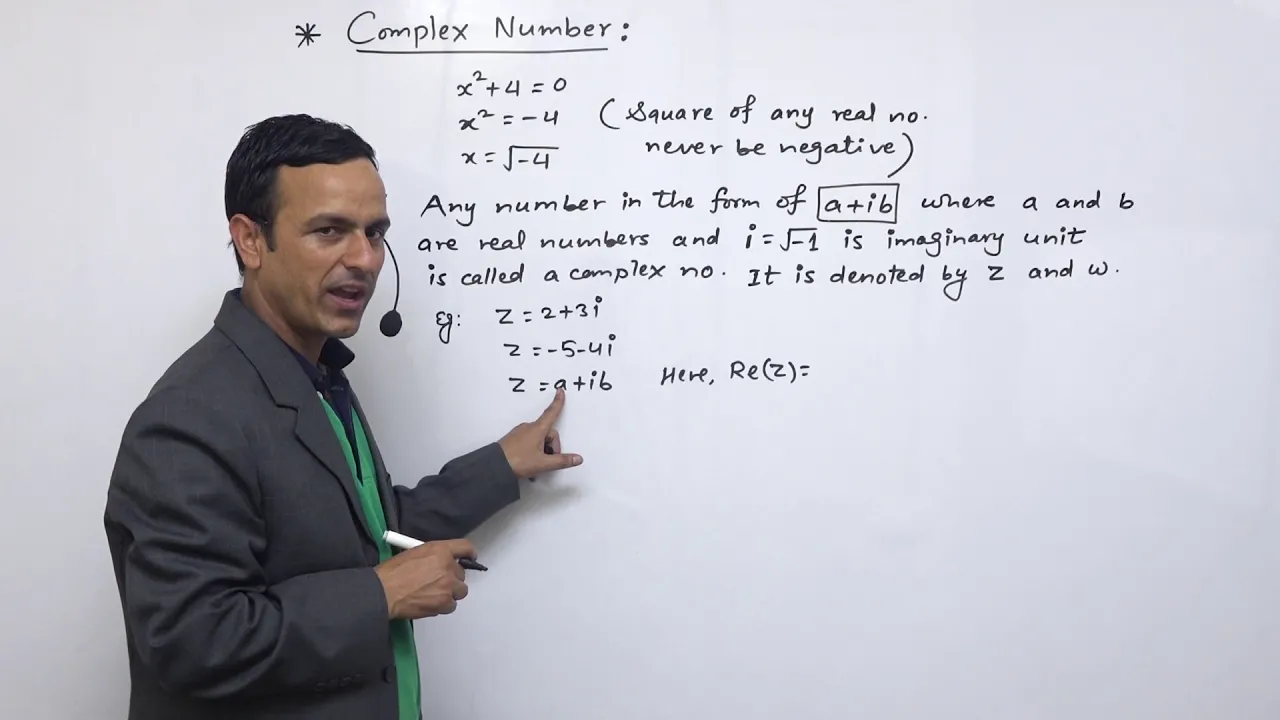 * Complex Number:
x²+4=0
x²=-4 (Square of any real no.
x=√-4 never be negative)
Any number in the form of a+ib where a and b
are real numbers and i=√-1 is imaginary unit
is called a complex no. It is denoted by z and w.
Eg: z=2+3i
z=-5-4i
z=a+ib Here, Re(z)=